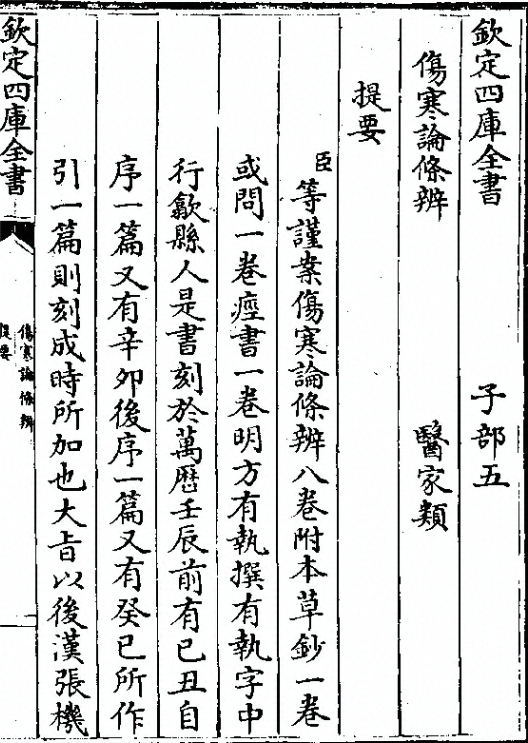 欽定四庫全書　子部五
傷寒論條辨　醫家類
提要
臣等謹案傷寒論條辨八卷附本草鈔一卷
或問一卷痙書一卷明方有執撰有執字中
行歙縣人是書刻於萬歴壬辰前有己丑自
序一篇又有辛卯後序一篇又有癸巳所作
引一篇則刻成時所加也大旨以後漢張機
欽定四庫全書
傷寒論條辨
提要